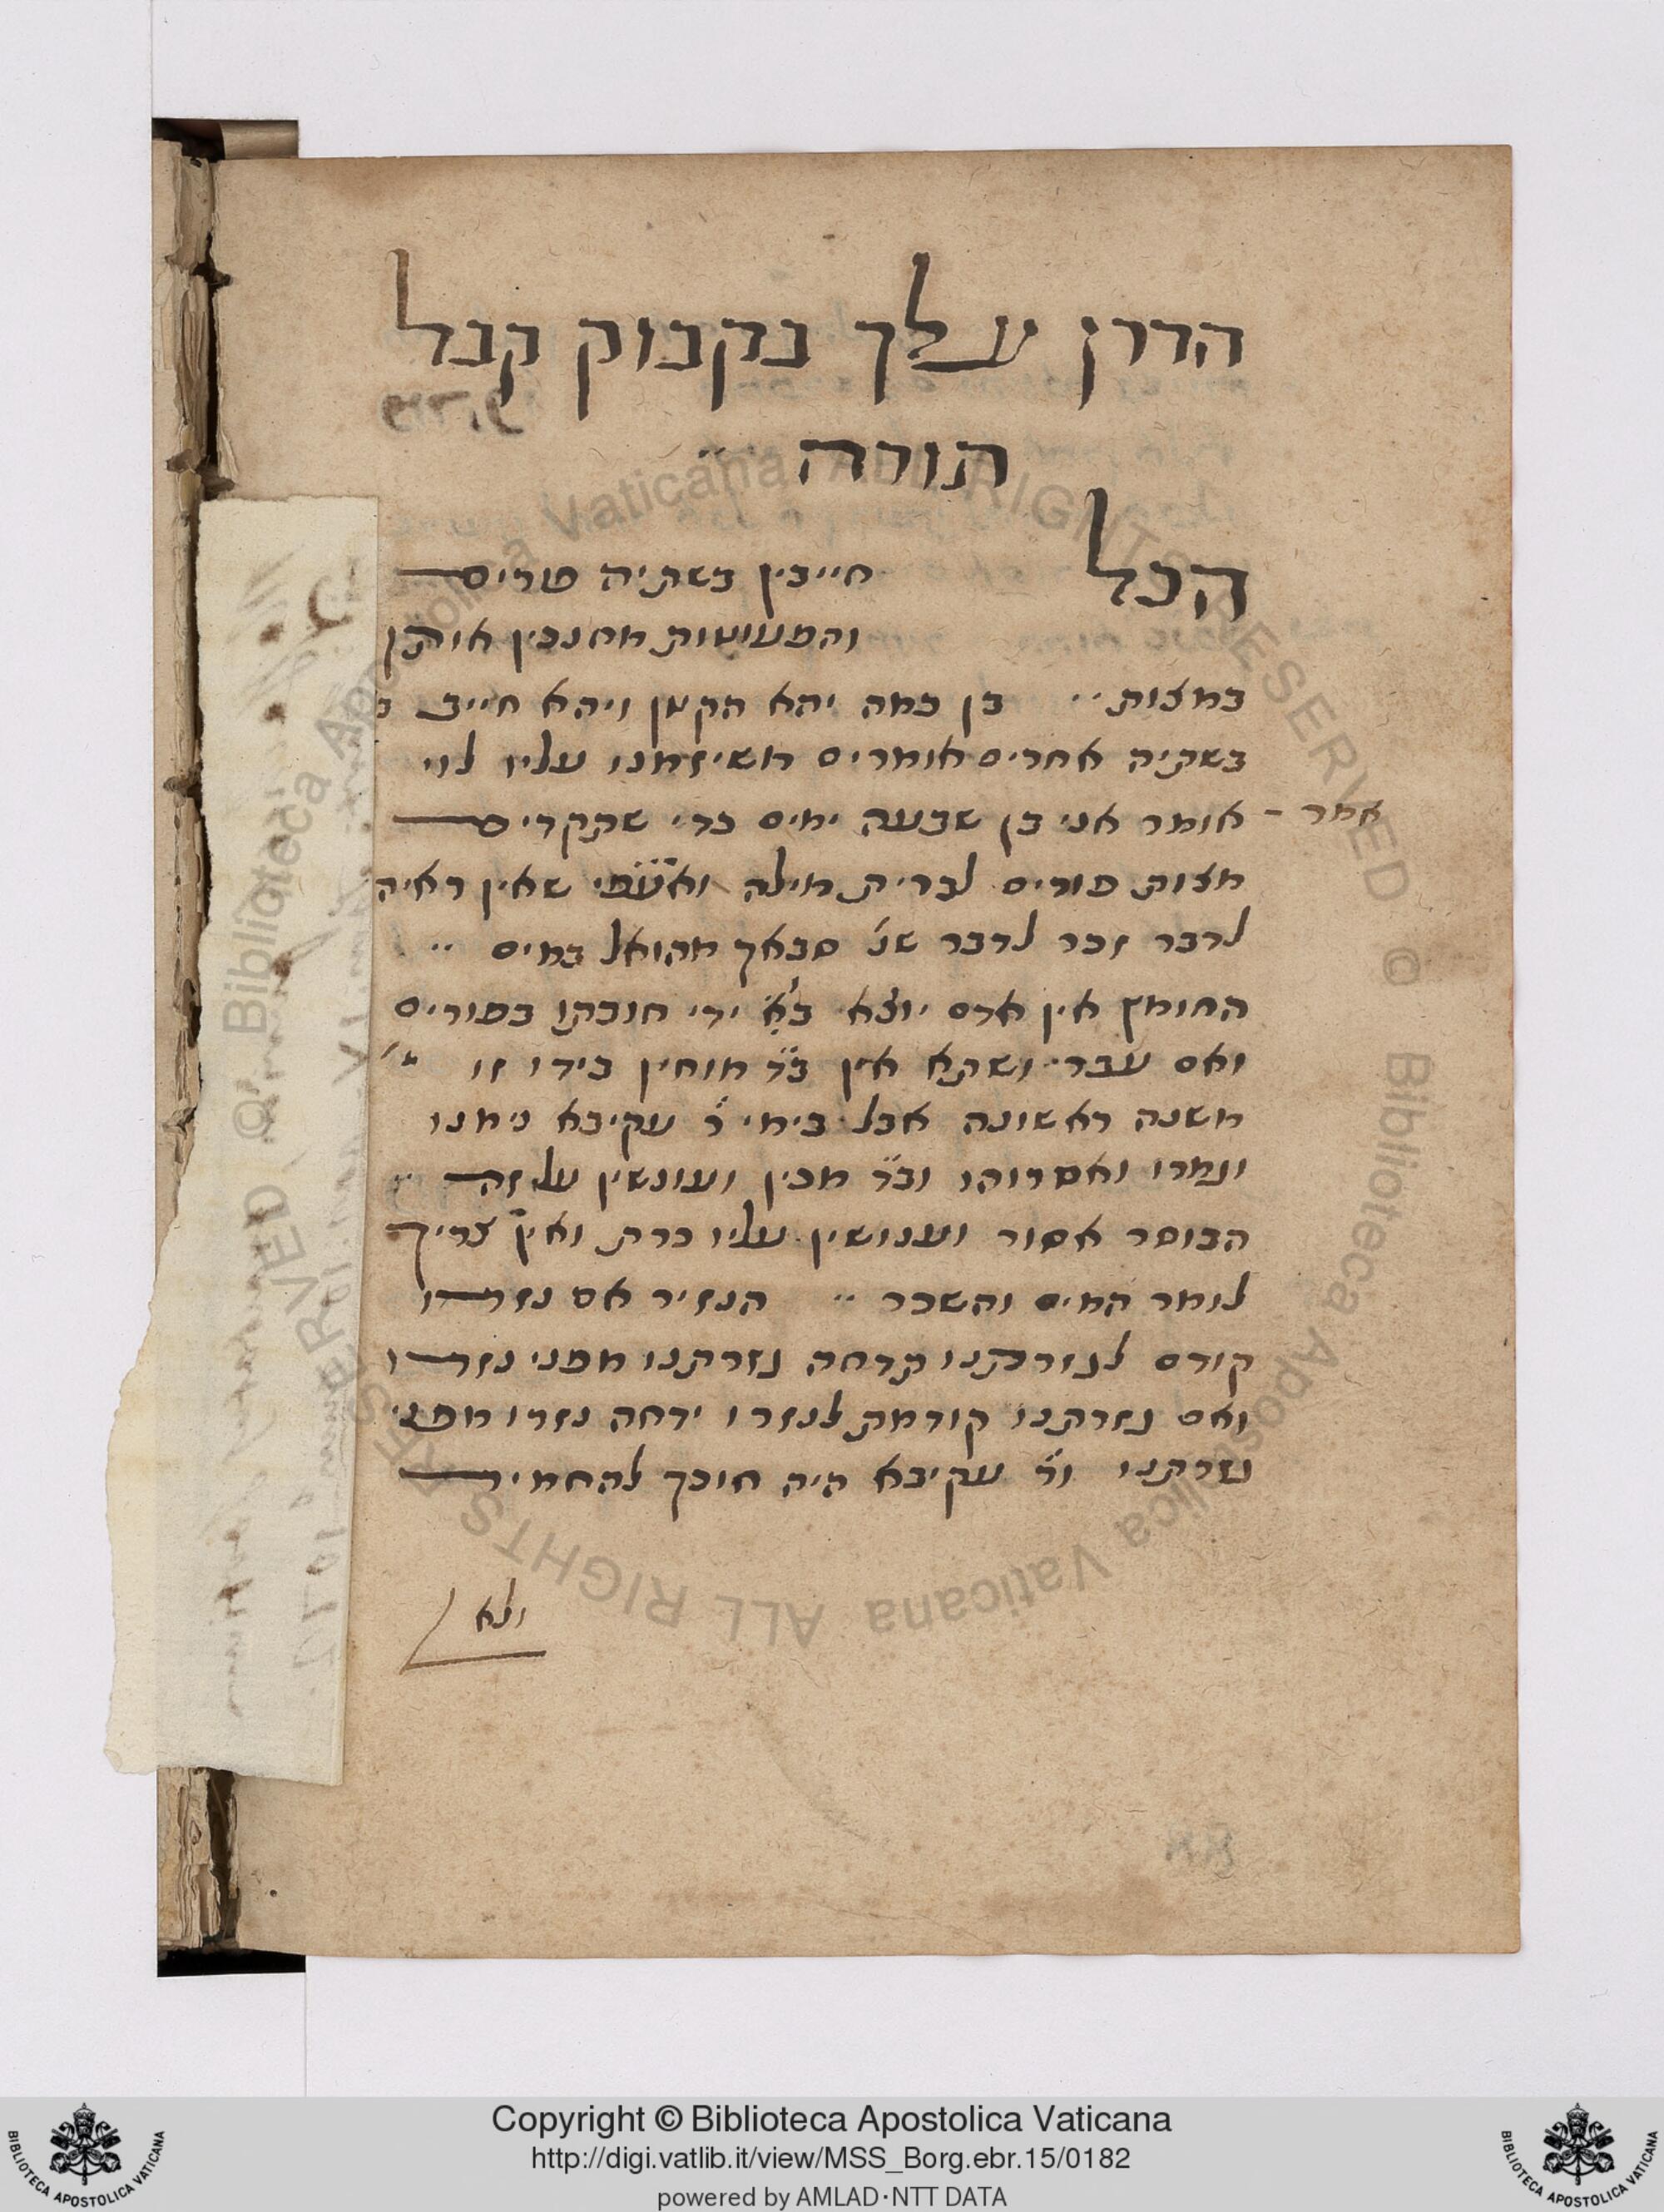 הדרן עלך בקבוק קבל
תורה
הכל
חייבין בשתיה פורים
והמעושות מחנכין אותן
במצות בן כמה יהא הקטן ויהא חייב
בשתיה אחרים אומרים משיזמנו עליו לוי
אמר - אומר אני בן שבעה ימים כדי שתקדים
מצות פורים לברית מילה שאין ראיה
לדבר זכר לדבר שנ׳ סבאך מהואל במים
החומץ אין אדם יוצא בו ידי חובתו בפורים
ואם עבר ושתא אין ב״ד מוחין בידו זו
משנה ראשונה אבל בימי ר׳ עקיבא נימנו
וגמרו ואסרוהו וב״ד מכין ועונשין על זה
הבוסר אסור וענושין עליו כרת ואין צריך
לומר המים והשכר הנזיר אם נזרו
קודם לנזרתנו תדחה נזרתנו מפני נזרו
ואם נזרתנו קודמת לנזרו ידחה נזרו מפני
נזרתנו ור׳ עקיבא היה חוכך להחמיר
ולא
Copyright © Biblioteca Apostolica Vaticana
http://digi.vatlib.it/view/MSS_Borg.ebr.15/0182
powered by AMLAD·NTT DATA